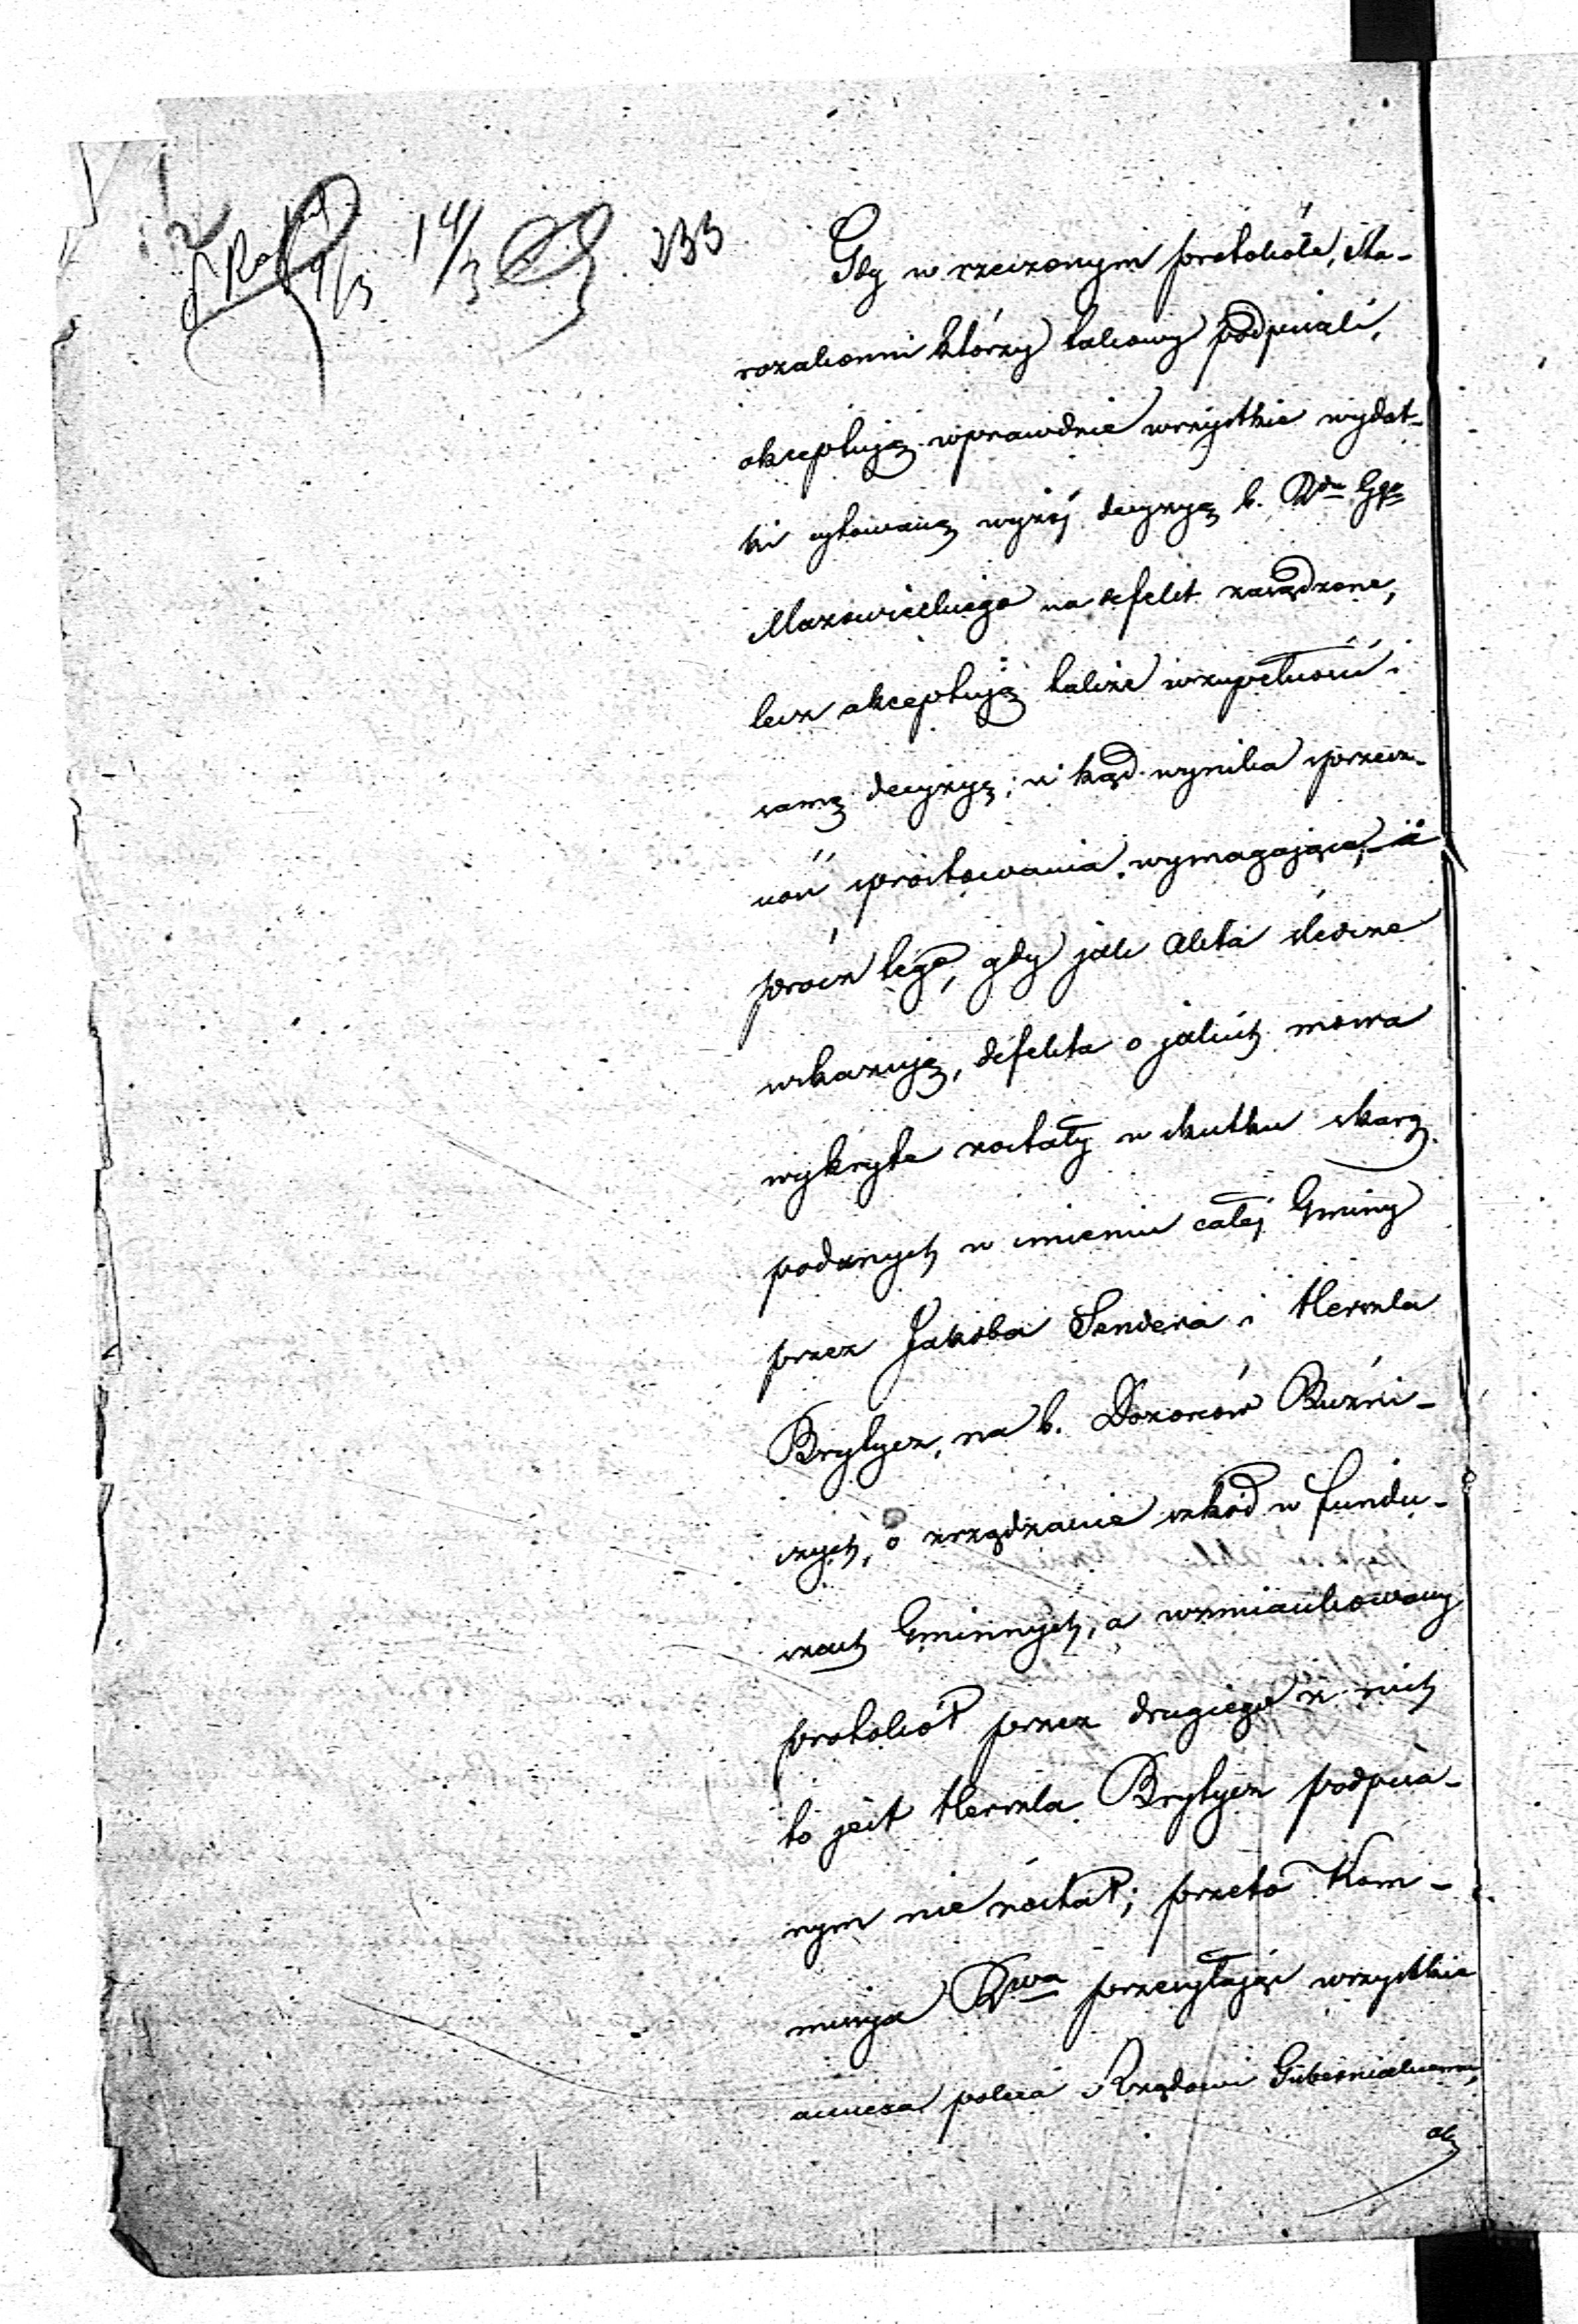 14/3 233
9/3
Gdy w rzeczonym protokóle, Sta-
rozakonni którzy takowy podpisali,
akceptują wprawdzie wszystkie wydat-
ki cytowaną wyżéj decyzyą b. Rdu Ggo
Mazowieckiego na defekt zasądzone,
lecz akceptują także wzupełności i
samą decyzyę; z kąd wynika sprzecz-
ność sprostowania wymagająca, a
prócz tego, gdy jak akta śledcze
wskazują, defekta o jakich mowa
wykryte zostały w skutku skarg
podanych w imieniu całéj Gminy
przez Jakóba Sendera i Herszla
Brylyez, na b. Dozorców Bużni-
czych, o zrządzanie szkód w fundu-
szach Gminnych, a wzmiankowany
protokół przez drugiego z nich
to jest Herszla Brylyez podpisa-
nym nie został; przeto Kom-
missya Rwa przesyłając wszystkie
annexa poleca Rządowi Gubernialnemu,
aby